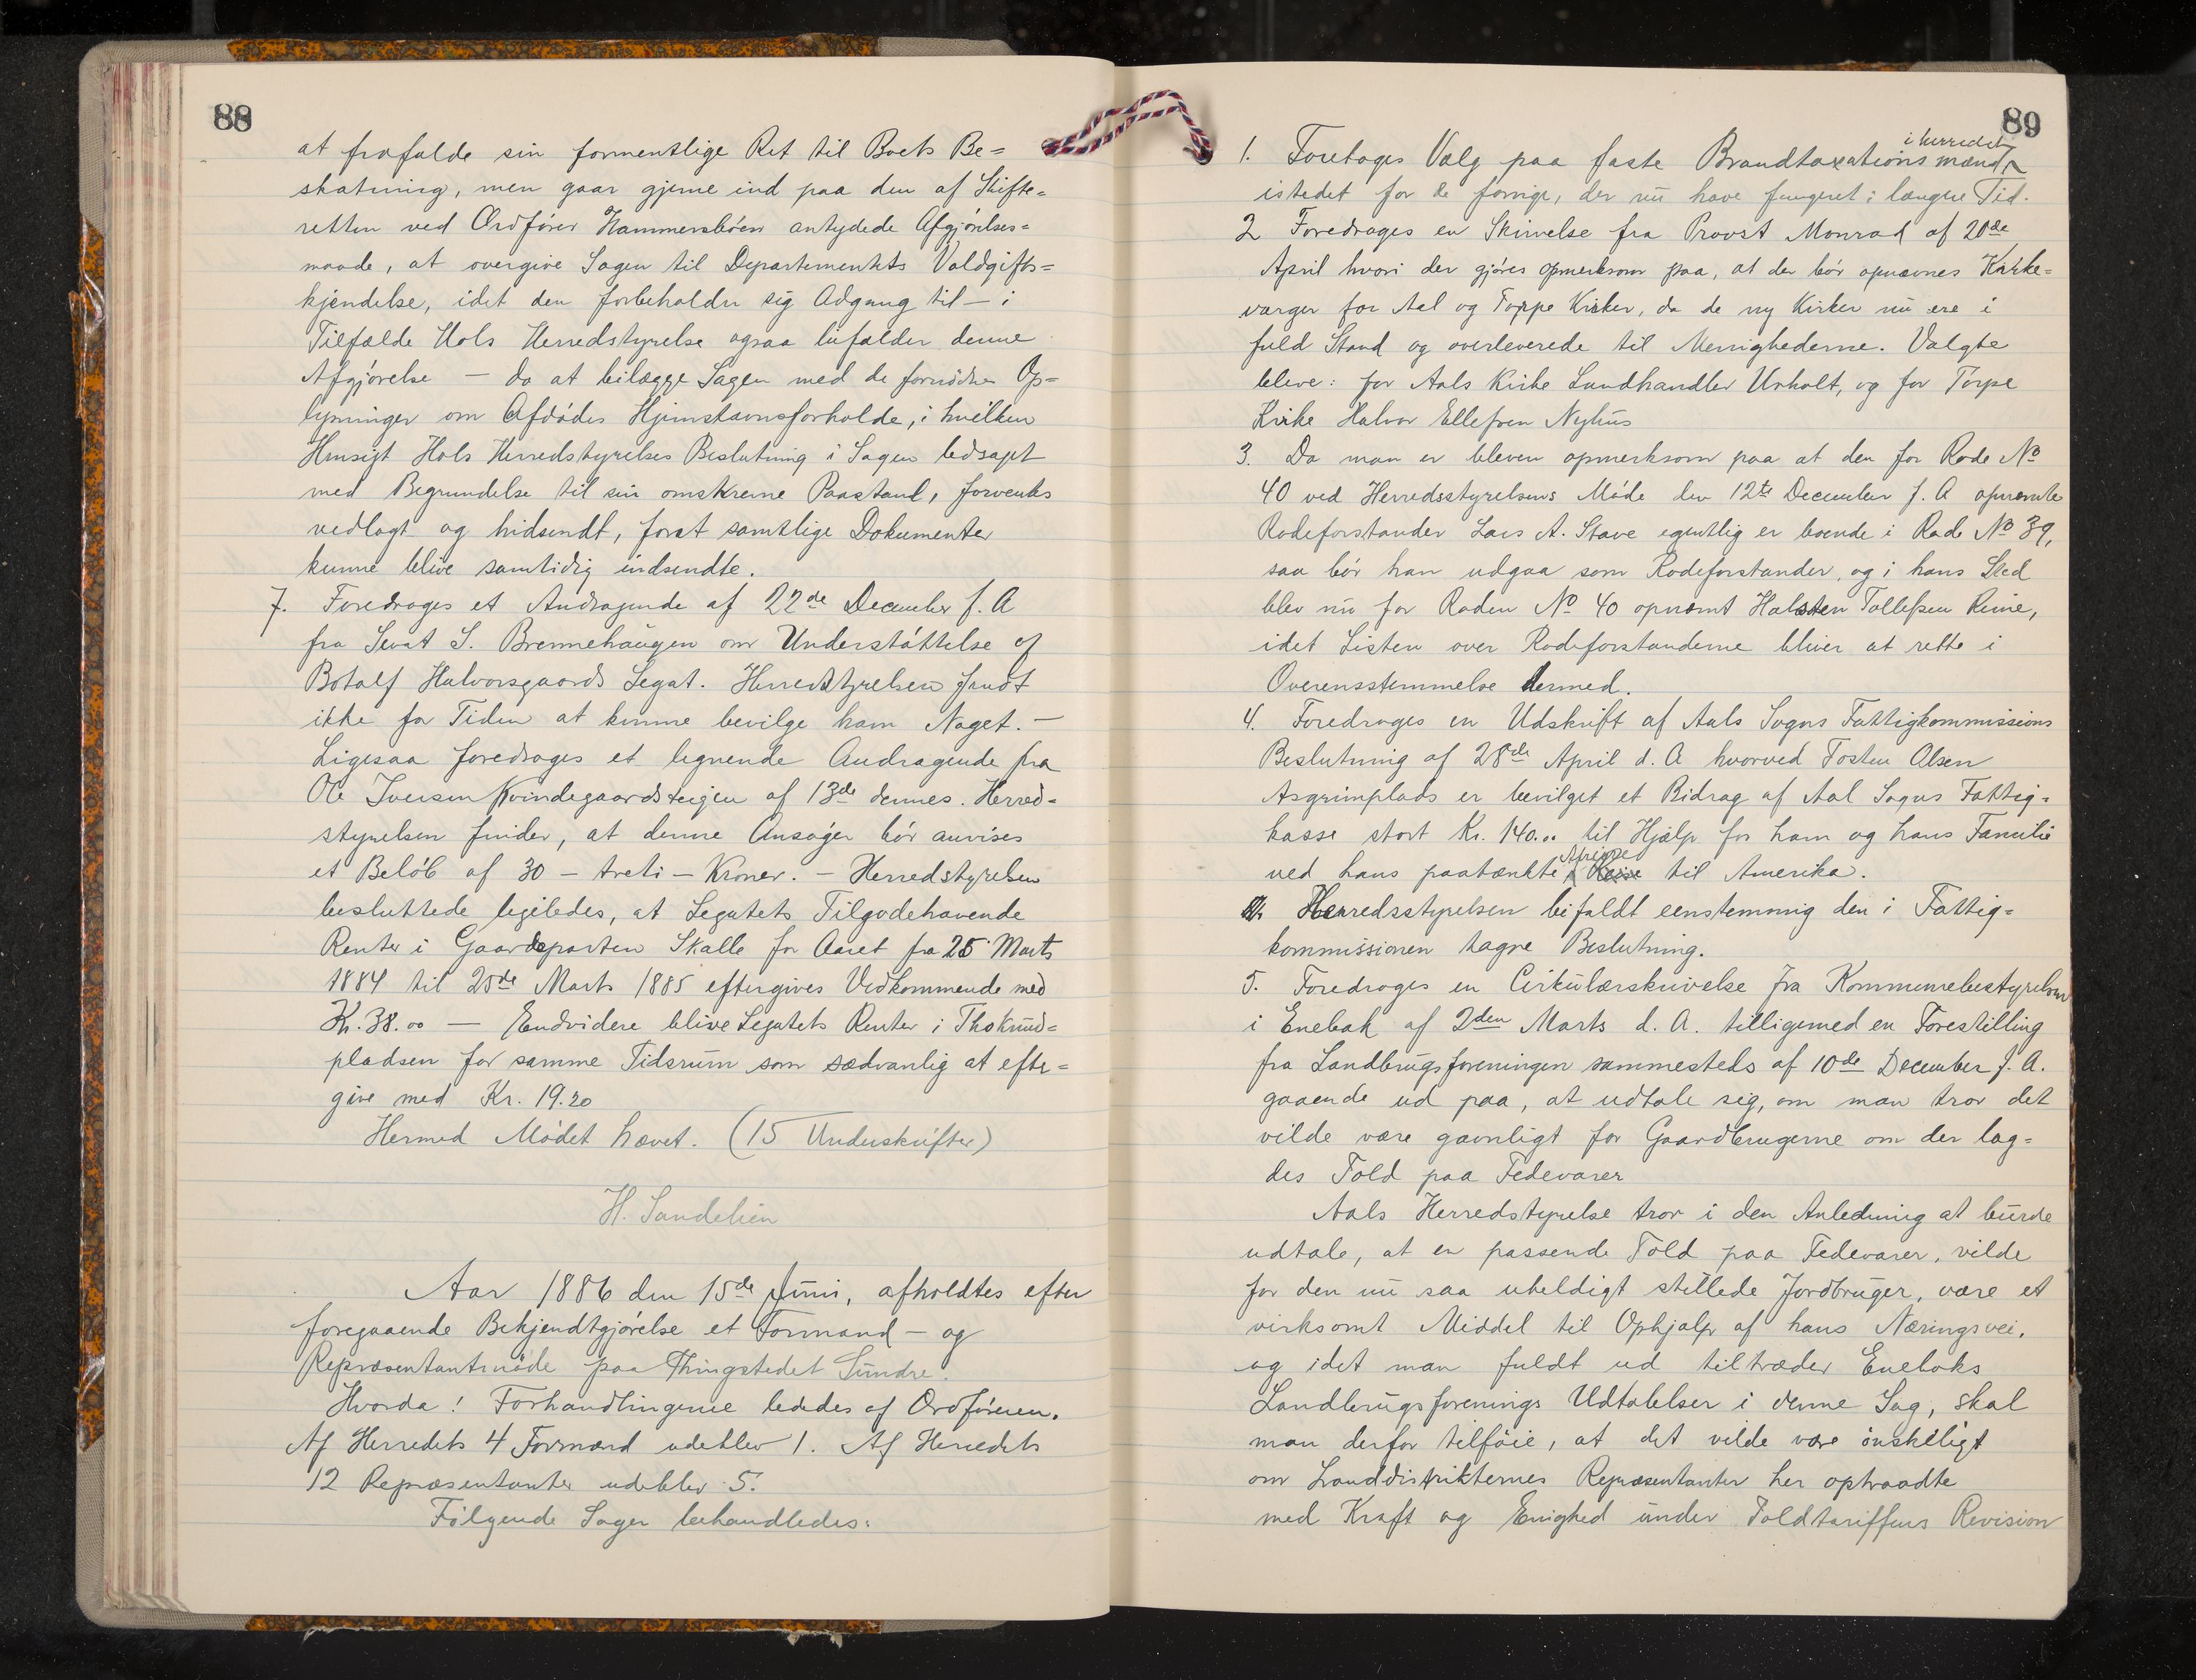 88
at frafalde sin formentlige Ret til Boets Be=
skatning, men gaar gjerne ind paa den af Skifte=
retten ved Ordfører Hammersbøen antydede Afgjørelses=
maade, at overgive Sagen til Departementets Voldgifts=
kjendelse, idet den forbeholder sig Adgang til – i
Tilfælde Hols Herredstyrelse ogsaa bifalder denne
Afgjørelse – da at bilægge Sagen med de fornødne Op=
lysninger om Afdødes Hjemstavnsforholde, i hvilken
Hensigt Hols Herredstyrelses Beslutning i Sagen ledsaget
med Begrundelse til sin omskrevne Paastand, forventes
vedlagt og hidsendt, forat samtlige Dokumenter
kunne blive samtidig indsendte.
7. Foredroges et Andragende af 22de December f. A
fra Sevat S. Brennehaugen om Understøttelse af
Botolf Halvorsgaards Legat. Herredstyrelsen fandt
ikke for Tiden at kunne bevilge ham Noget. –
Ligesaa foredroges et lignende Andragende fra
Ole Iversen Kvindegaardsteigen af 13de dennes. Herred=
styrelsen finder, at denne Ansøger bør anvises
et Beløb af 30 – treti – Kroner. – Herredstyrelsen
besluttede ligeledes, at Legatets Tilgodehavende
Renter i Gaardeparten Skalle for Aaret fra 25 Marts
1884 til 25de Marts 1885 eftergives Vedkommende med
Kr. 38.00 – Endvidere blive Legatets Renter i Thokrud=
pladsen for samme Tidsrum som sædvanlig at efter=
give med Kr. 19.20
Hermed Mødet hævet. (15 Underskrifter)
H. Sandelien
Aar 1886 den 15de Juni, afholdtes efter
foregaaende Bekjendtgjørelse et Formand – og
Repræsentantmøde paa Thingstedet Sundre.
Hvorda! Forhandlingerne lededes af Ordføreren.
Af Herredets 4 Formænd udeblev 1. Af Herredets
12 Repræsentanter udeblev 5.
Følgende Sager behandledes:
89
i herredet
1. Foretoges Valg paa faste Brandtaxationsmænd
istedet for de forrige, der nu have fungeret i længere Tid.
2 Foredroges en Skrivelse fra Provst Monrad af 20de
April hvori der gjøres opmerksom paa, at der bør opnævnes Kirke=
værger for Aal og Torpe Kirker, da de ny Kirker nu ere i
fuld Stand og overleverede til Menighederne. Valgte
bleve: for Aals Kirke Landhandler Urholt, og for Torpe
Kirke Halvor Ellefsen Nyhus
3. Da man er bleven opmerksom paa at den for Rode No
40 ved Herredsstyrelsens Møde den 12te December f. A opnævnte
Rodeforstander Lars A. Stave egentlig er boende i Rode No 39,
saa bør han udgaa som Rodeforstander, og i hans Sted
blev nu for Roden No 40 opnævnt Halsten Tollefsen Reine,
idet Listen over Rodeforstanderne bliver at rette i
Overensstemmelse dermed.
4. Foredroges en Udskrift af Aals Sogns Fattigkommissions
Beslutning af 28de April d. A hvorved Tosten Olsen
Asgrimplads er bevilget et Bidrag af Aal Sogns Fattig=
kasse stort Kr. 140.00 til Hjælp for ham og hans Familie
Afreise
ved hans paatænkte Reise til Amerika.
Herredsstyrelsen bifaldt eenstemmig den i Fattig=
kommissionen tagne Beslutning.
5. Foredroges en Cirkulærskrivelse fra Kommunebestyrelsen
i Enebak af 2den Marts d. A. tilligemed en Forestilling
fra Landbrugsforeningen sammesteds af 10de December f. A.
gaaende ud paa, at udtale sig, om man tror det
vilde være gavnligt for Gaardbrugerne om der lag=
des Told paa Fedevarer
Aals Herredstyrelse tror i den Anledning at burde
udtale, at en passende Told paa Fedevarer, vilde
for den nu saa uheldigt stillede Jordbruger, være et
virksomt Middel til Ophjælp af hans Næringsvei.
og idet man fuldt ud tiltræder Enebaks
Landbrugsforenings Udtalelser i denne Sag, skal
man derfor tilføie, at det vilde være ønskeligt
om Landdistrikternes Repræsentanter her optraadte
med Kraft og Enighed under Toldtariffens Revision